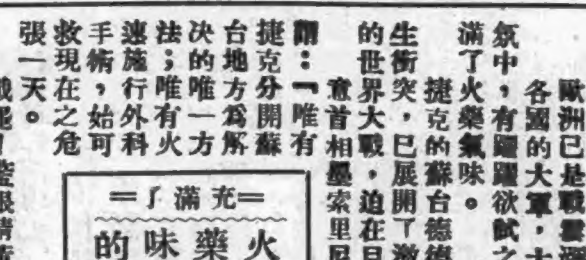 歐洲已是戰雲
各國的大軍，士
氛中，有躍躍欲試之
滿了火藥氣味。
捷克的蘇台德
生衝突，已展開了激
的世界大戰，迫在
意首相墨索里尼
謂：「唯有
捷克分開蘇
台地方爲解
决的唯一方
法；唯有火
速施行外科
手術，始可
救現在之危
張一天。
藍眼睛
＝充滿了＝
火藥味的